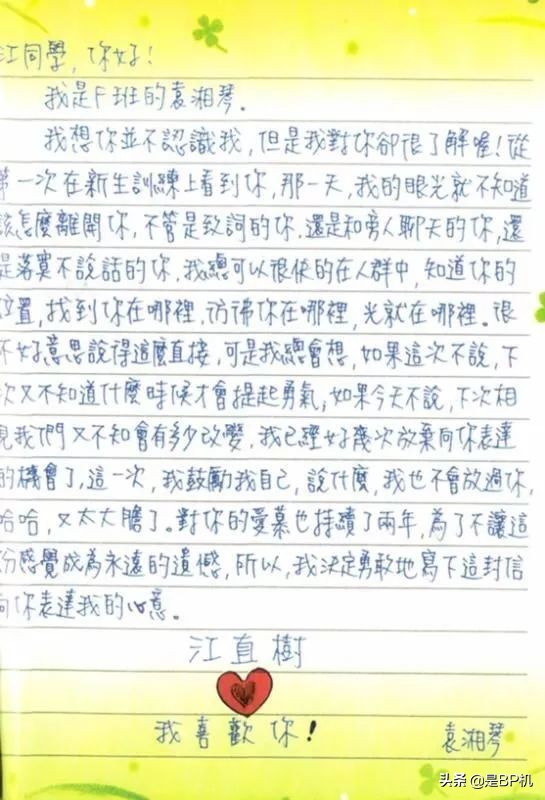 江同學,你好!
我是F班的袁湘琴。
我想你並不認識我,但是我對你卻很了解喔!從
第一次在新生訓練上看到你,那一天,我的眼光就不知道
該怎麼離開你,不管是致詞的你,還是和旁人聊天的你,還
是落寞不說話的你,我總可以很快的在人群中,知道你的
位置,找到你在哪裡,彷彿你在哪裡,光就在哪裡。很
不好意思說得這麼直接,可是我總會想,如果這次不說,下
次又不知道什麼時候才會提起勇氣;如果今天不說,下次相
見我們又不知會有多少改變,我已經好幾次放棄向你表達
的機會了,這一次,我鼓勵我自己,說什麼,我也不會放過你,
哈哈,又太大膽了。對你的愛慕也持續了兩年,為了不讓這
份感覺成為永遠的遺憾,所以,我決定勇敢地寫下這封信
向你表達我的心意。
江直樹
我喜歡你!
袁湘琴
头条 @是BP机